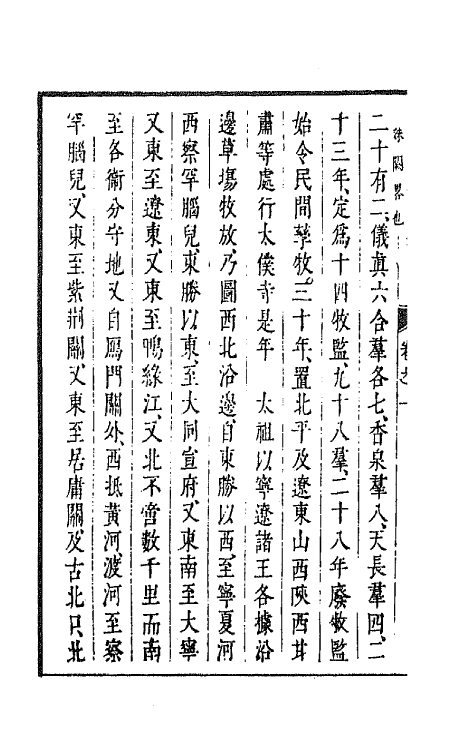 殊闊畧也
二十有二、儀真六合羣各七、香泉羣八、天長羣四、二
十三年、定爲十四牧監、九十八羣、二十八年廢牧監
始令民間孳牧。三十年、置北平及遼東山西陝西甘
肅等處行太僕寺是年　太祖以寧遼諸王各據沿
邊草塲牧放、乃圖西北沿邊、自東勝以西、至寧夏河
西察罕腦兒、東勝以東、至大同宣府、又東南至大寧
又東至遼東、又東至鴨綠江、又北不啻數千里而南
至各衞分守地又自鴈門關外、西抵黃河、渡河至察
罕腦兒、又東至紫荆關、又東至居庸關、及古北口、北
卷之